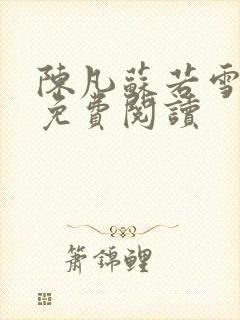 陳凡蘇若雪
免費閱讀
簫錦鯉